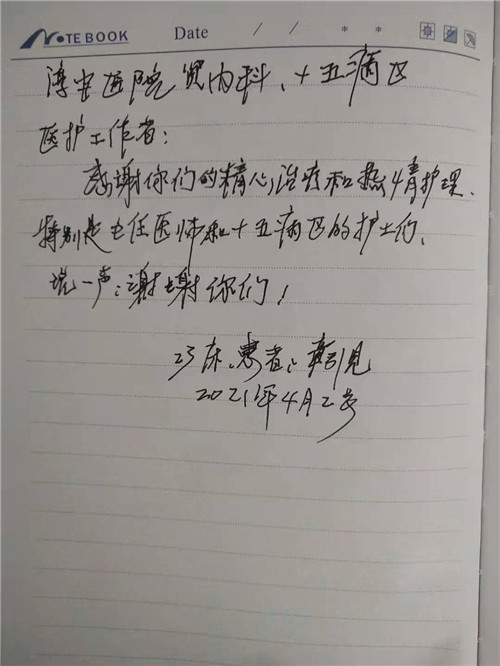 NOTE BOOK Date / / * *
淳安医院 内科、十五病区
医护工作者:
感谢你们的精心治疗和热情护理、
特别是主任医师和十五病区的护士们、
说一声:谢谢你们!
23床、患者:
2021年4月2号